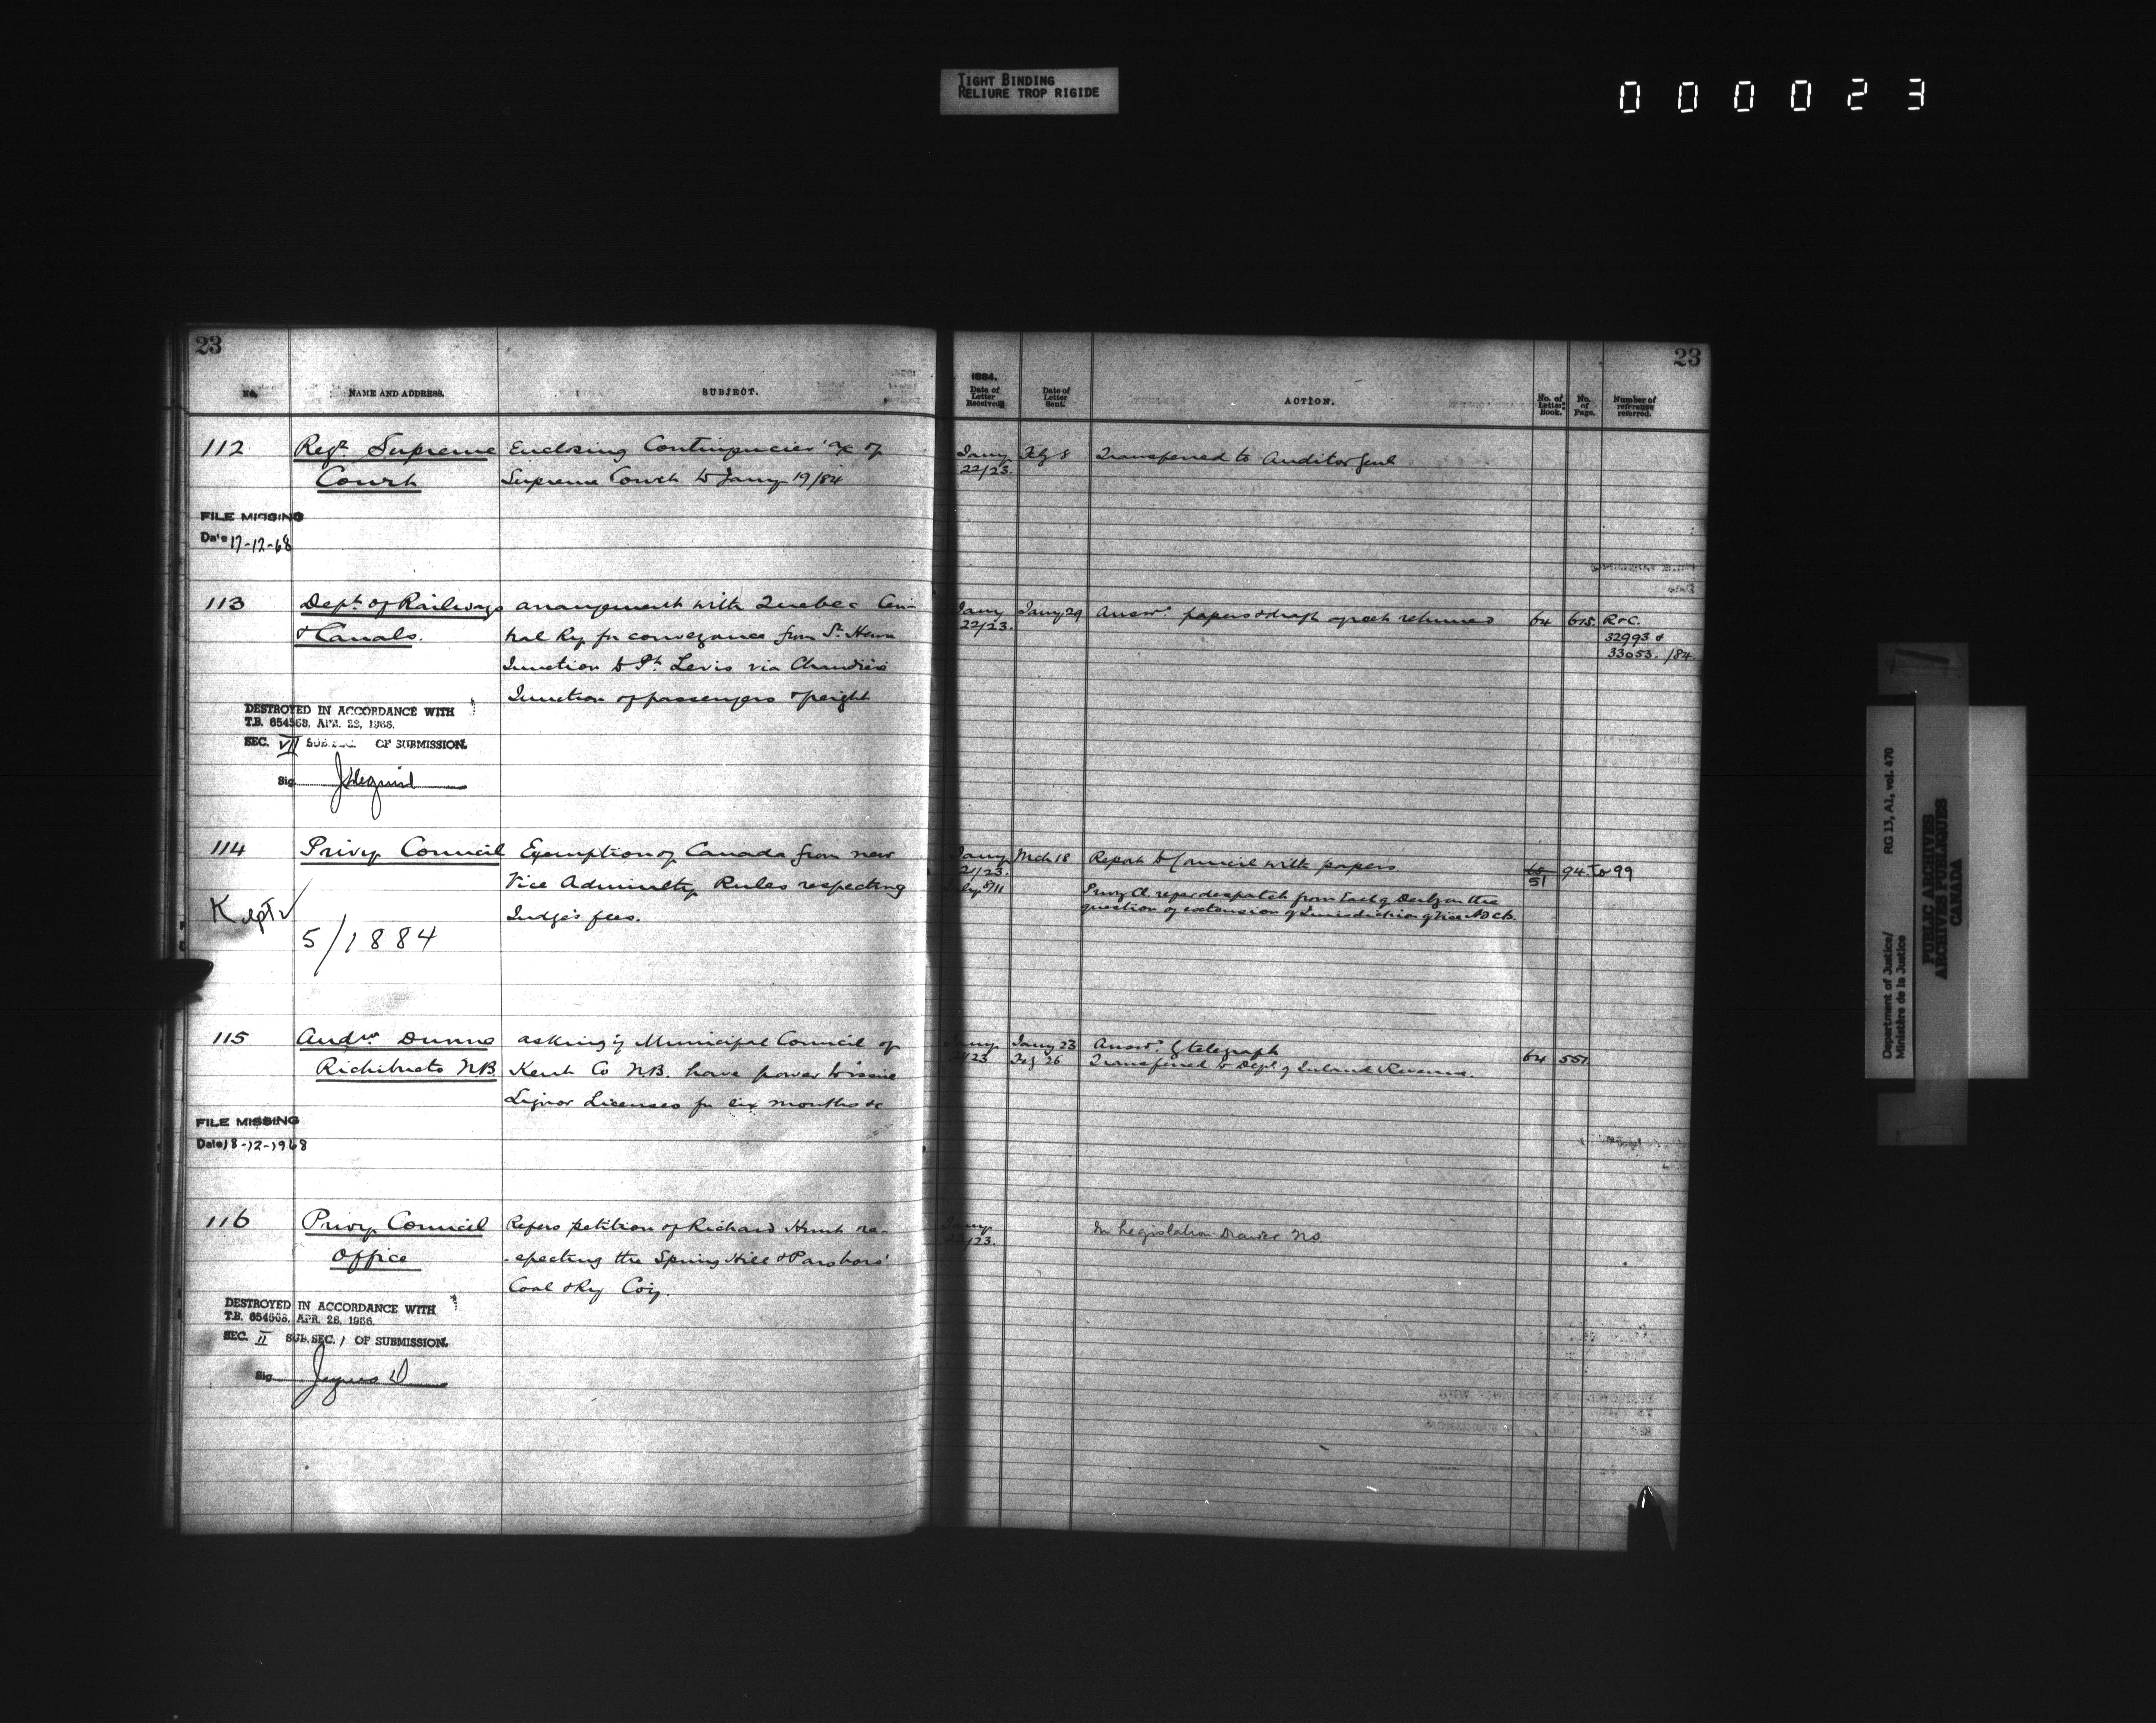 TIGHT BINDING
RELIURE TROP RIGIDE
000023
23
No.
NAME AND ADDRESS.
SUBJECT.
112
Regr. Supreme
Court
Enclosing Contingencies a/c of
Supreme Court to Jany 19/84
FILE MISSING
Date 17-12-68
113
Dept. of Railways
& Canals.
arrangement with Quebec Cen-
tral Ry for conveyance from St. Henri
Junction to Pt. Levis via Chaudière
Junction of passengers & freight
DESTROYED IN ACCORDANCE WITH
T.B. 654568, APR. 28, 1966.
SEC. VII SUB.SEC. OF SUBMISSION.
Sig.
114
Privy Council
Exemption of Canada from new
Vice Admiralty Rules respecting
Judge's fees.
Kept ✓
5/1884
115
Andw. Dunne
Richibucto N.B.
asking if Municipal Council of
Kent Co N.B. have power to issue
Liquor Licenses for six months &c
FILE MISSING
Date 18-12-1968
116
Privy Council
Office
Refers petition of Richard Hunt re-
-specting the Spring Hill & Parsboro'
Coal & Ry Coy.
DESTROYED IN ACCORDANCE WITH
T.B. 654568, APR. 28, 1966.
SEC. II SUB.SEC. 1 OF SUBMISSION.
Sig.
23
1884.
Date of Letter Received.
Date of Letter Sent.
ACTION.
No. of Letter Book.
No. of Page.
Number of reference referred.
Jany 22/23.
Feby 8
Transferred to Auditor Genl
Jany 22/23.
Jany 29
Answd. papers & draft agreet returned
64
615.
R & C.
32993 &
33053. /84.
Jany 21/23.
Mch 18
Report to Council with papers
51
94 to 99
July 8/11
Privy Cl. refer despatch from Earl of Derby on the
question of extension of Jurisdiction of Vice Ad Ct.
Jany 23
Jany 23
Answd. by telegraph
64
551
Feby 26
Transferred to Dept of Inland Revenue.
Jany 23.
In Legislation Drawer No
Department of Justice/
Ministère de la Justice
RG 13, A1, vol. 470
PUBLIC ARCHIVES
ARCHIVES PUBLIQUES
CANADA